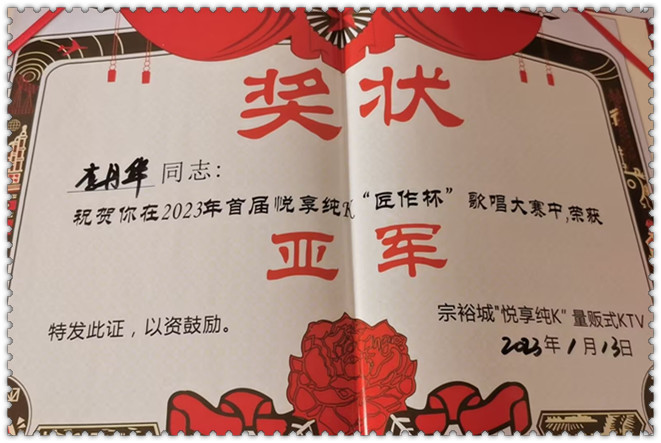 奖状
李月华同志:
祝贺你在2023年首届悦享纯K“匠作杯”歌唱大赛中,荣获
亚军
特发此证，以资鼓励。
宗裕城"悦享纯K"量贩式KTV
2023年1月13日